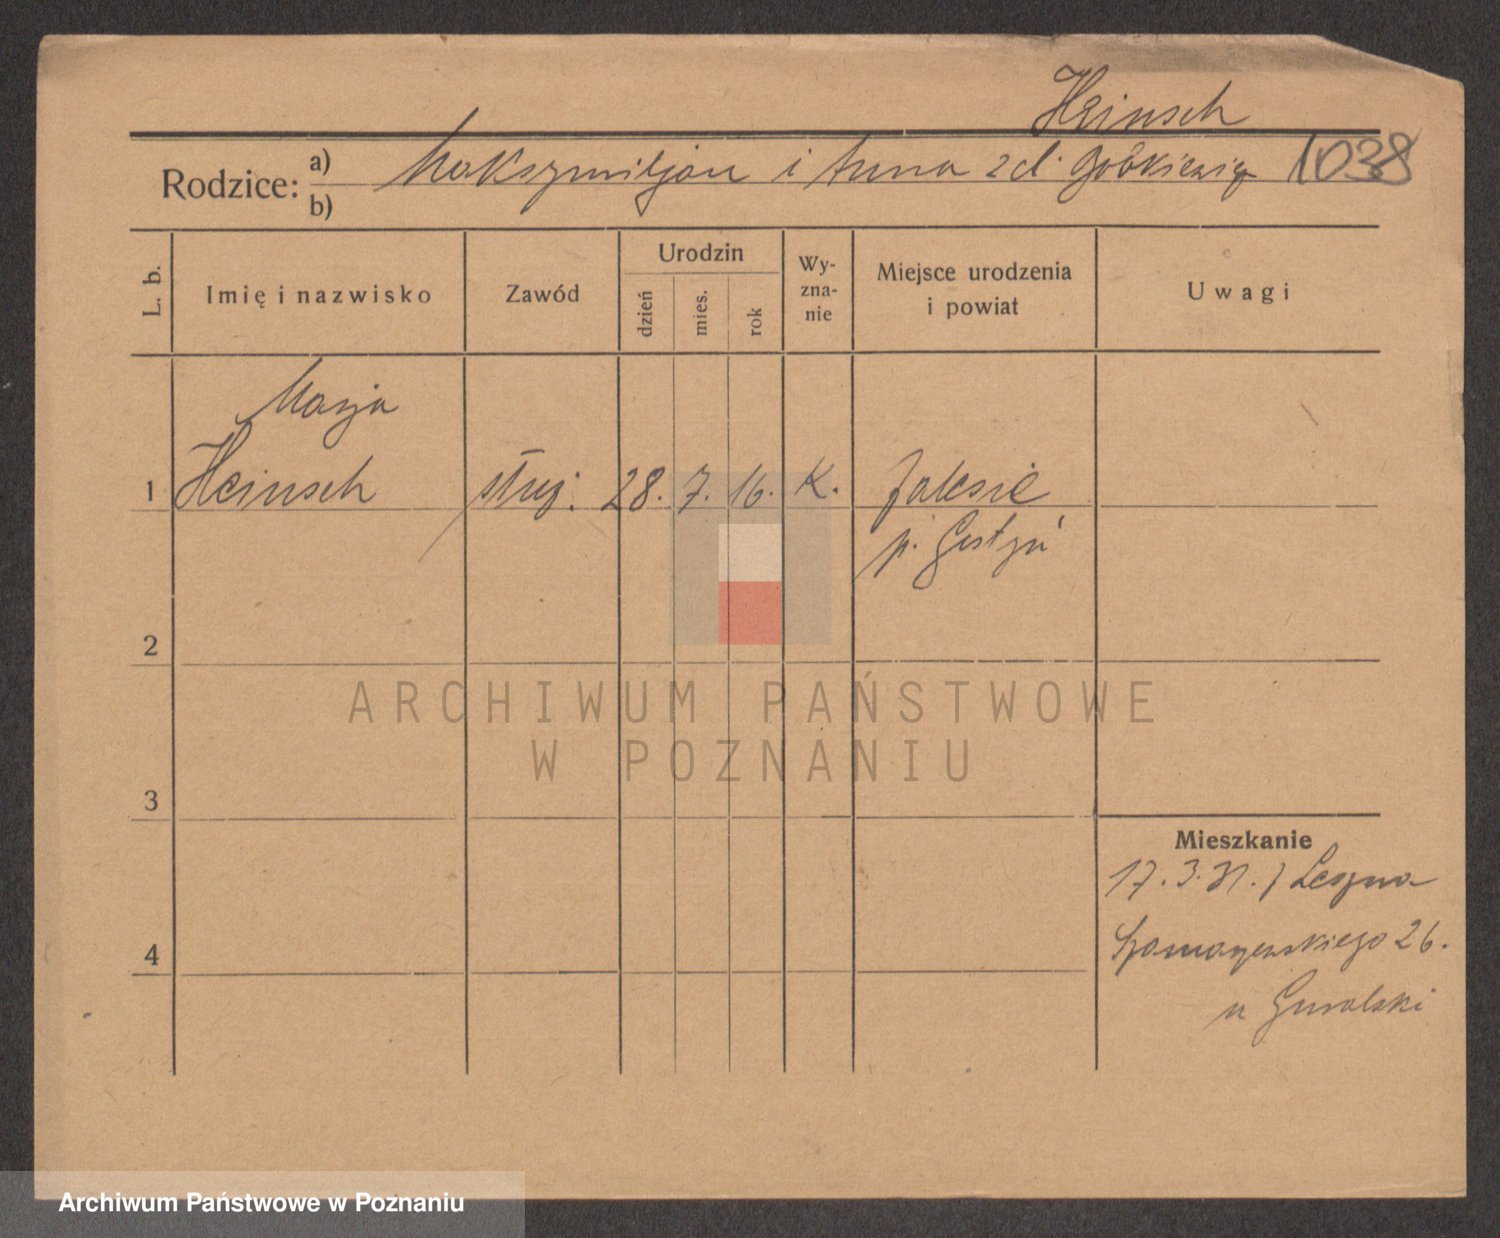 Heinsch
Rodzice: a) Maksymiljan i Anna zd. 1038
b)
L. b.
Imię i nazwisko
Zawód
Urodzin
dzień
mies.
rok
Wy-
zna-
nie
Miejsce urodzenia
i powiat
Uwagi
Marja
1 Heinsch służ. 28. 7. 16. K. Zalesie
p. Gostyń
2
3
4
Mieszkanie
17. 3. 31. z Leszna
26.
u
ARCHIWUM PAŃSTWOWE
W POZNANIU
Archiwum Państwowe w Poznaniu